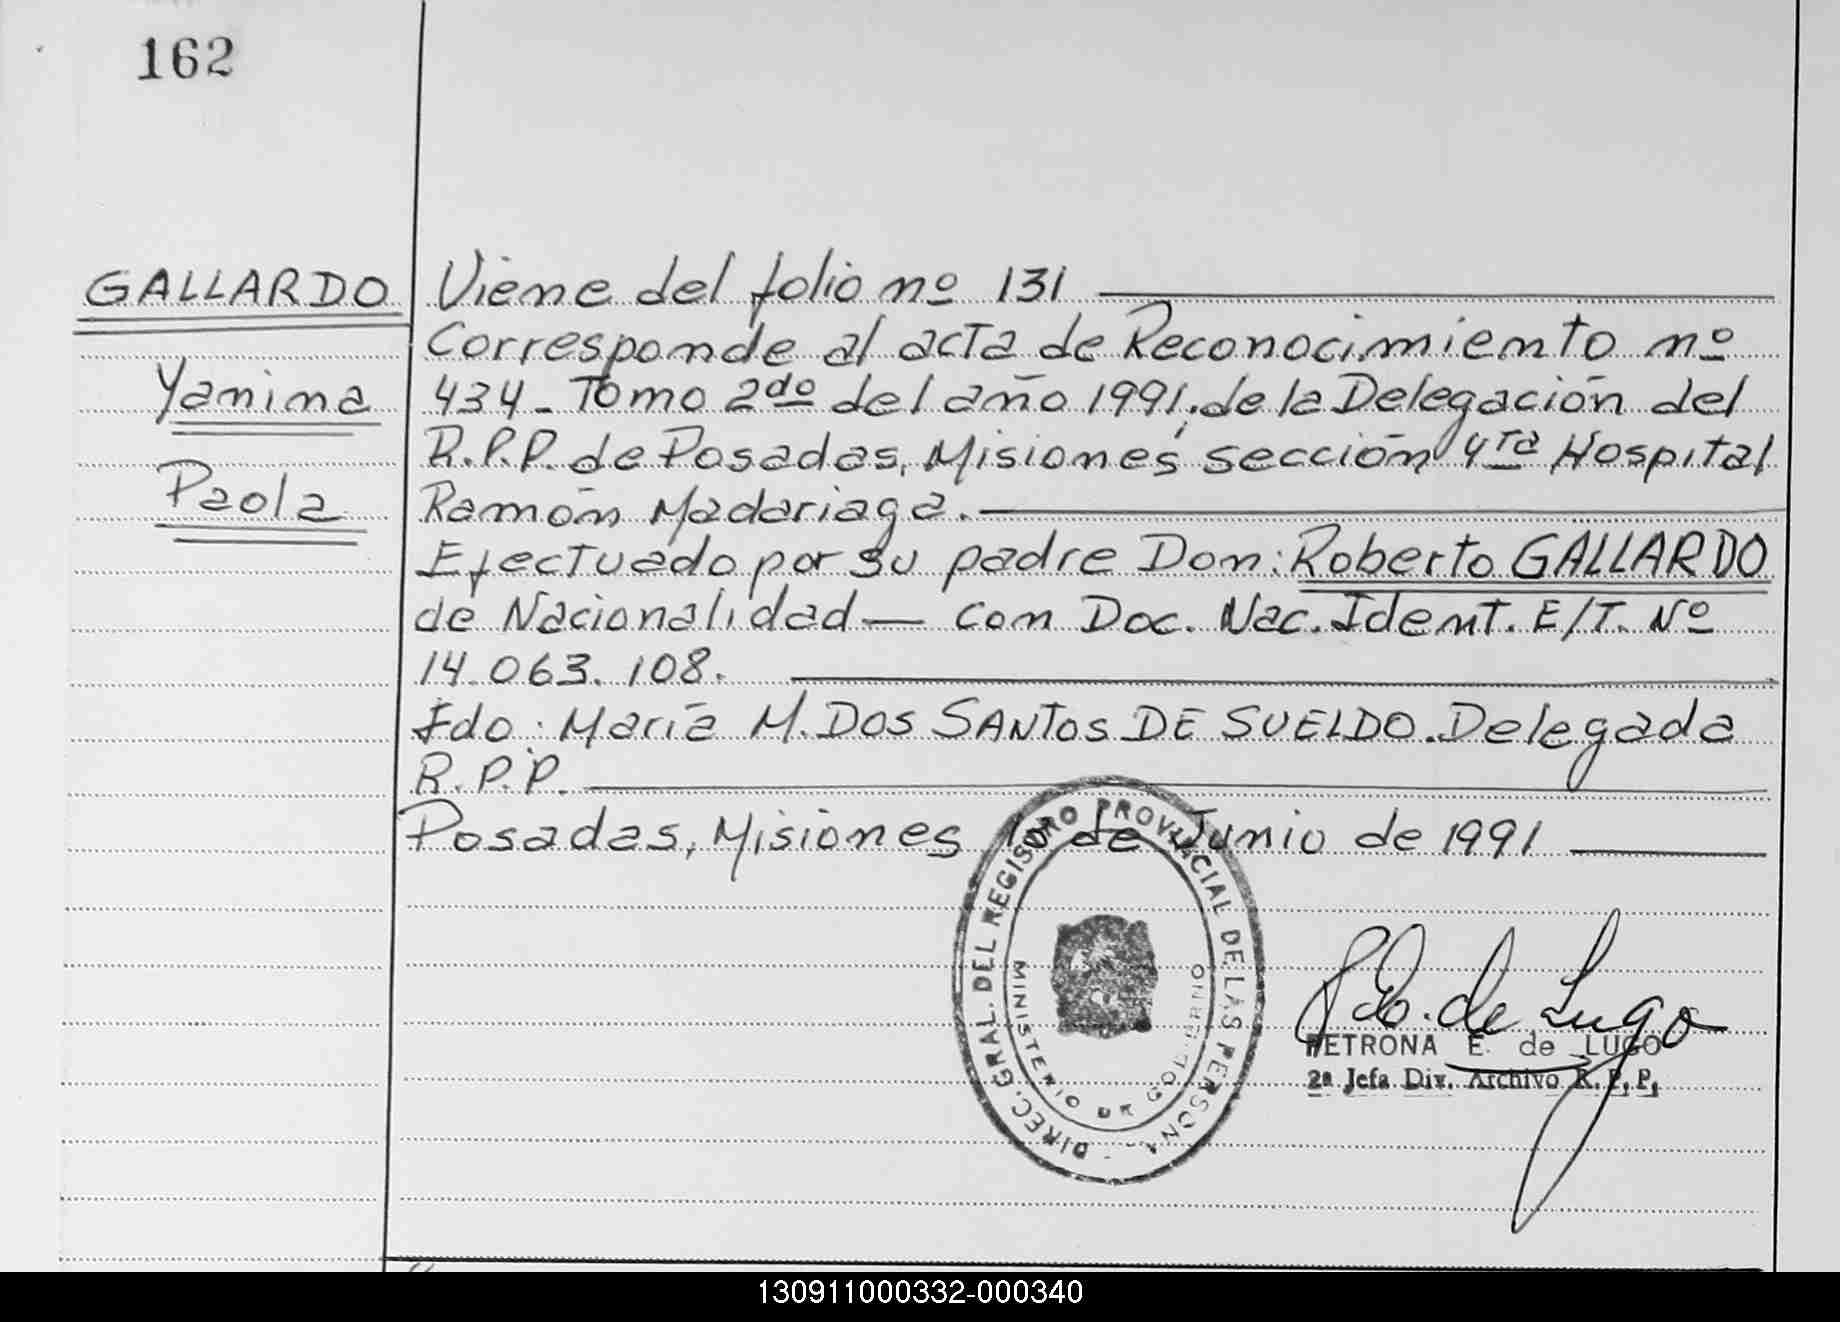 162
GALLARDO
Yanina
Paola
Viene del folio nº 131
Corresponde al acta de Reconocimiento nº
434_ Tomo 2do del año 1991, de la Delegación del
R.P.P. de Posadas, Misiones, sección 4ta Hospital
Ramón Madariaga.
Efectuado por su padre Don: Roberto GALLARDO
de Nacionalidad — con Doc. Nac. Ident. E/T. Nº
14.063.108.
Fdo: María M. DOS SANTOS DE SUELDO. Delegada
R.P.P.
Posadas, Misiones de Junio de 1991
DIREC. GRAL. DEL REGISTRO PROVINCIAL DE LAS PERSONAS
MINISTERIO DE GOBIERNO
P. de Lugo
PETRONA E. de LUGO
2ª Jefa Div. Archivo R. P. P.
130911000332-000340